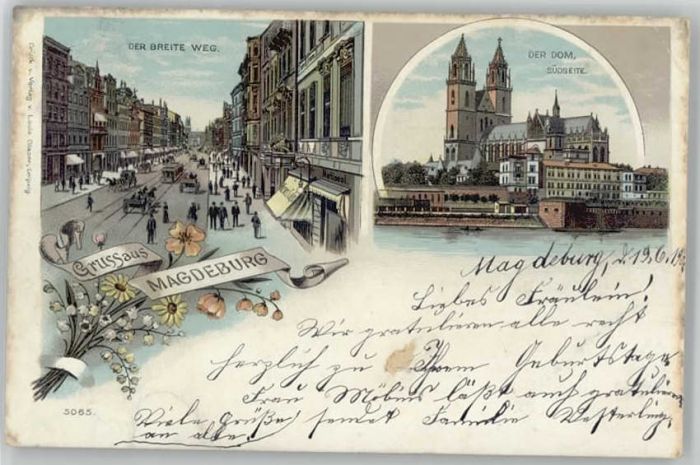 DER BREITE WEG.
DER DOM,
SÜDSEITE.
Druck u. Verlag v. Louis Glaser, Leipzig
National
Gruss aus
MAGDEBURG
Magdeburg, d 19.6.
Liebes Fräulein!
Wir gratulieren alle recht
herzlich zu Ihrem Geburtstage
Frau Möbius läßt auch gratulieren
Viele Grüße sendet Familie Westerling
an alle!
5065.